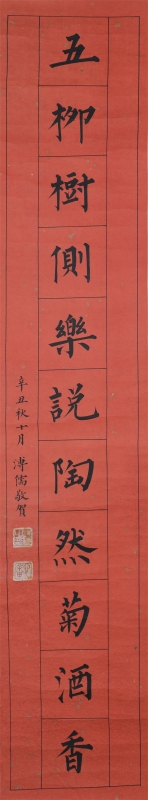 五柳樹側樂説陶然菊酒香
辛丑秋十月 溥儒敬賀